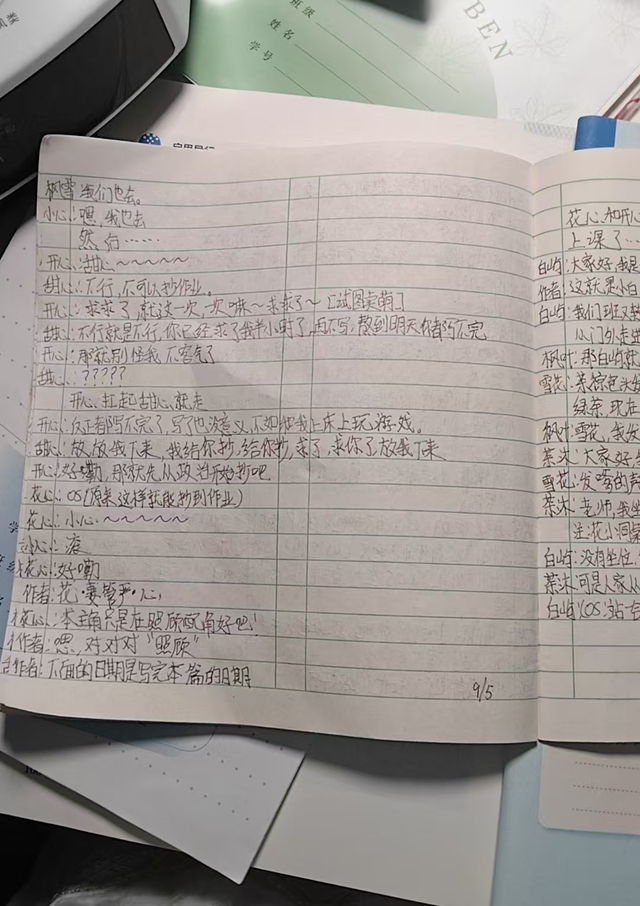 班级
姓名
学号
BEN
枫雪:我们也去。
小心:嗯,我也去
然后……
开心:甜心~~~~~
甜心:不行,不可以抄作业。
开心:求求了,就这一次,一次嘛~求求了~[试图卖萌]
甜心:不行就是不行,你已经求了我半小时了,再不写,拖到明天你都写不完
开心:那就别怪我不客气了
甜心:?????
开心扛起甜心就走
开心:反正都写不完了,写了也没意义,不如和我上床上玩游戏。
甜心:放,放我下来,我给你抄,给你抄,求了,求你了放我下来
开心:好嘞,那就先从政治开始抄吧
花心:OS(原来这样就能抄到作业)
花心:小心~~~~~
小心:滚
花心:好嘞
作者:花·妻管严·心
花心:本主角只是在照顾配角好吧!
作者:嗯,对对对“照顾”
作者:下面的日期是写完本篇的日期
9/5
花心和开心
上课了…
白屿:大家好,我是
作者:这就是小白
白屿:我们班又转
从门外走进
枫叶:那白屿就
雪花:
绿茶,现走
枫叶:雪花,我
茶沫:大家好
雪花:发嗲的声
茶沫:老师,我坐
注:花小洞
白屿:没有坐位
茶沫:可是人家从
白屿:(OS:站右